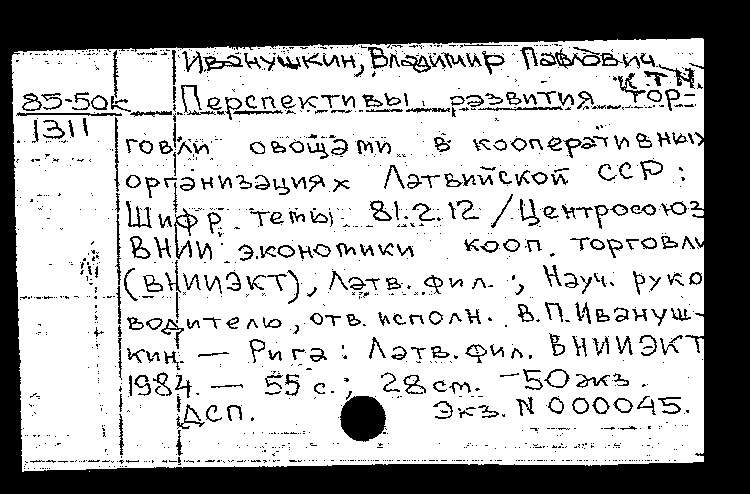 Иванушкин, Владимир Павлович
к.т.н.
85-50к Перспективы развития тор-
1311
говли овощами в кооперативных
организациях Латвийской ССР :
Шифр темы 81.2.12 / Центросоюз
ВНИИ экономики кооп. торговли
(ВНИИЭКТ), Латв. фил. ; Науч. руко
водитель, отв. исполн. В.П. Ивануш-
кин. — Рига : Латв. фил. ВНИИЭКТ
1984. — 55 с. ; 28 см. — 50 экз.
ДСП. Экз. N 000045.